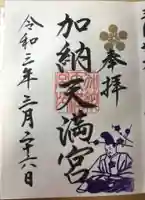 奉拝
加納天満宮
令和三年三月二十六日